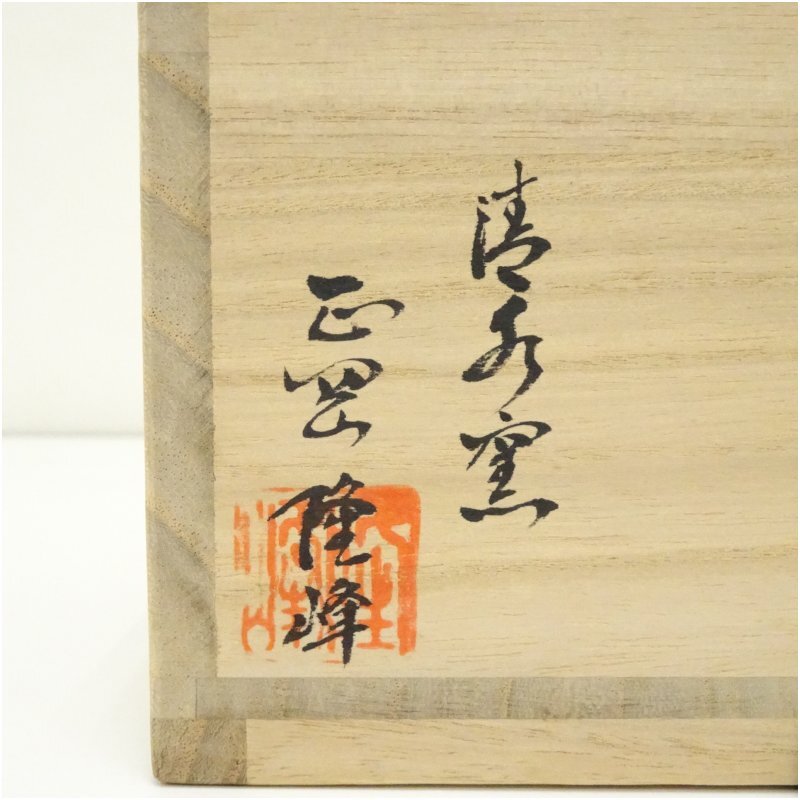 清水窯
正岡隆峰